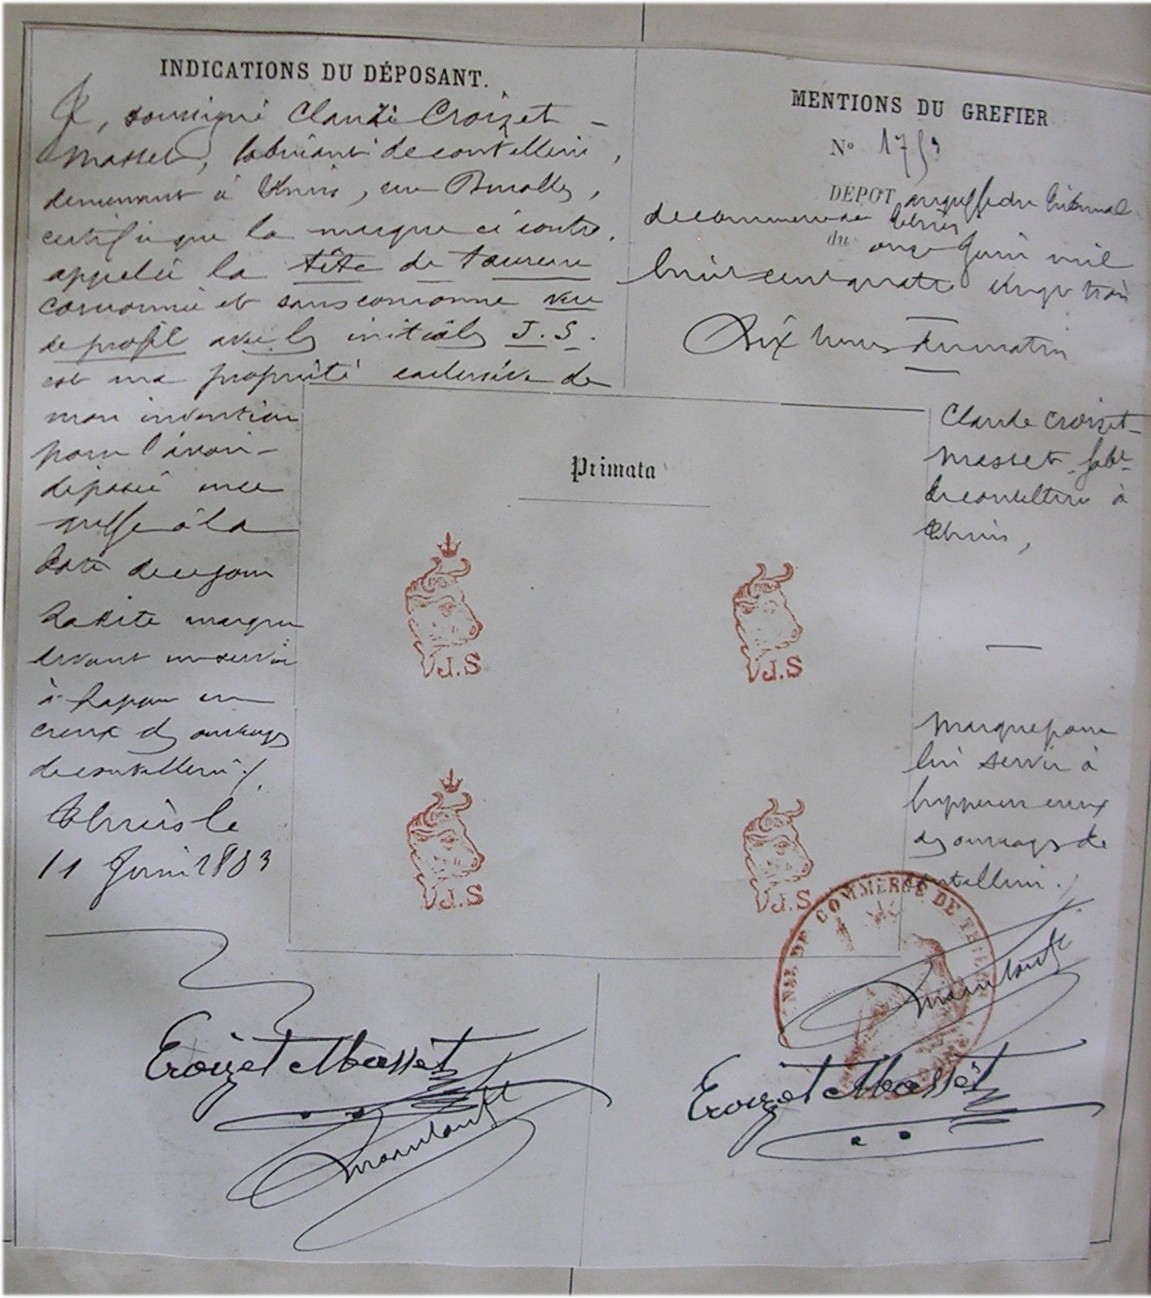 INDICATIONS DU DÉPOSANT.
Je, soussigné Claude Croizet-
Masset, fabricant de coutellerie,
demeurant à Thiers, rue Durolle,
certifie que la marque ci contre,
appelée la tête de taureau
couronnée et sans couronne vue
de profil avec les initiales J.S.
est ma propriété exclusive de
mon invention
pour l'avoir
déposée au
greffe à la
date de ce jour
Ladite marque
devant me servir
à frapper en
creux des ouvrages
de coutellerie./.
Thiers le
11 Juin 1883
MENTIONS DU GREFIER
No 1753
DÉPOT au greffe du tribunal
de commerce de Thiers
du onze Juin mil
huit cent quatre vingt trois
Dix heures du matin
Primata
Claude Croizet-
Masset, fabt
de coutellerie à
Thiers,
Marque pour
lui servir à
frapper en creux
des ouvrages de
coutellerie.
J.S
J.S
J.S
J.S
COMMERCE DE THIERS
Croizet Masset
Croizet Masset